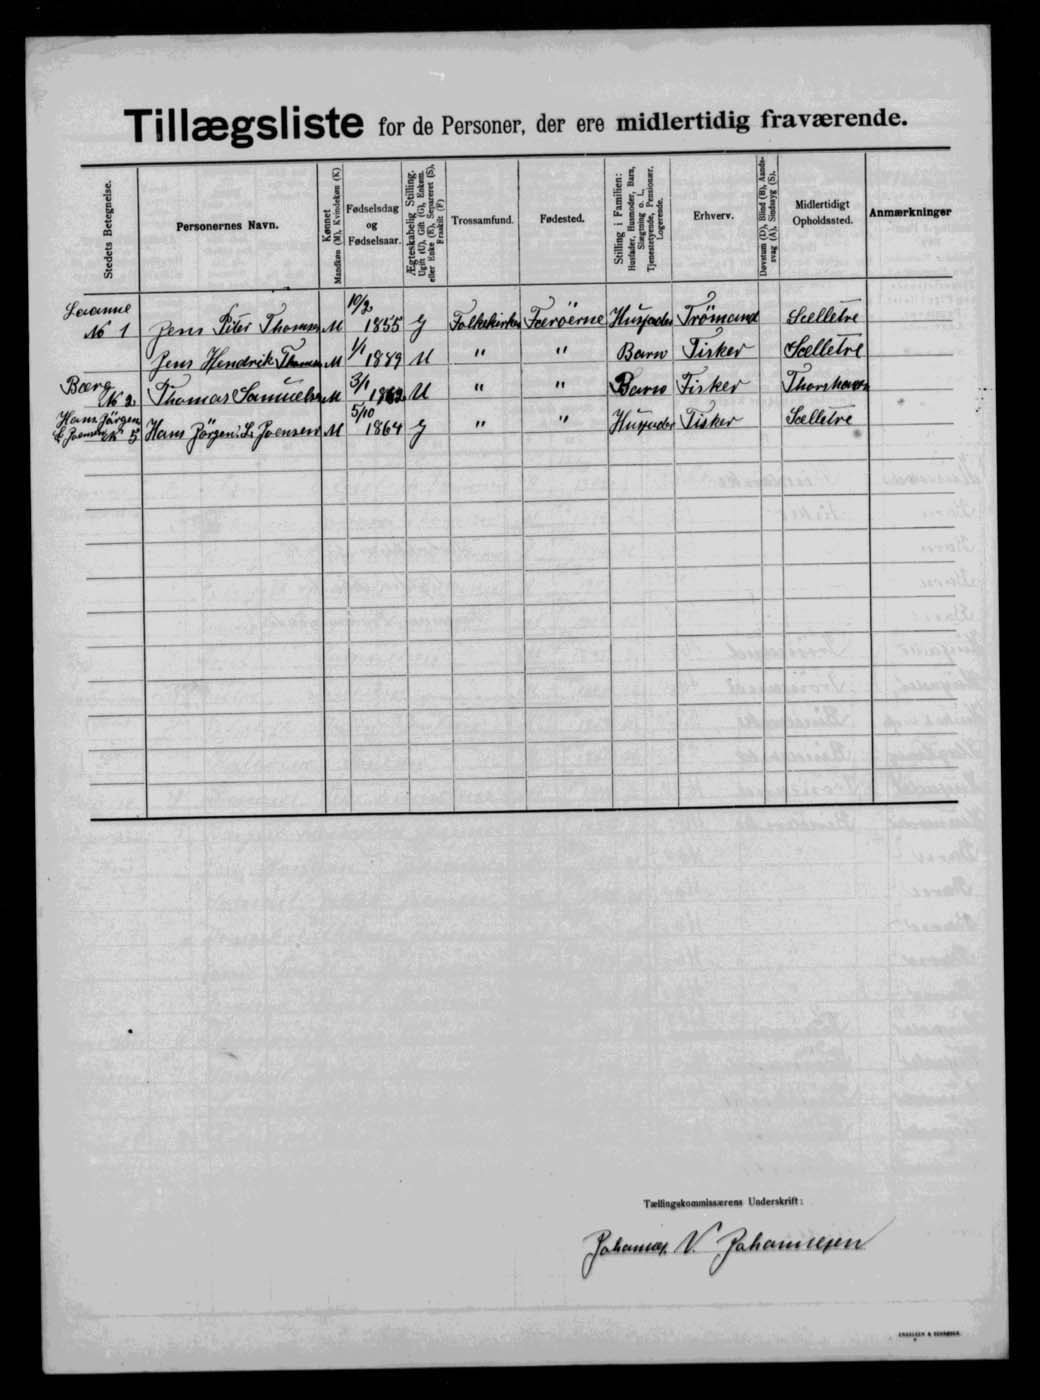 Tillægsliste for de Personer, der ere midlertidig fraværende.
Stedets Betegnelse.
Personernes Navn.
Kønnet
Mandkøn (M), Kvindekøn (K)
Fødselsdag
og
Fødselsaar.
Ægteskabelig Stilling.
Ugift (U), Gift (G), Enkem.
eller Enke (E), Separeret (S),
Fraskilt (F)
Trossamfund.
Fødested.
Stilling i Familien:
Husfader, Husmoder, Barn,
Slægtning o. l.,
Tjenestetyende, Pensionær,
Logerende.
Erhverv.
Døvstum (D), Blind (B), Aands-
svag (A), Sindssyg (S).
Midlertidigt
Opholdssted.
Anmærkninger
№ 1 Jens Peter Thomsen M 10/2 1855 G Folkekirken Færöerne Husfader Trömand Selletre
Jens Hendrik Thomsen M 1/1 1889 U " " Barn Fisker Selletre
№ 2. Thomas Samuelsen M 3/1 U " " Barn Fisker Thorshavn
Hans Jörgen
Joensen № 5 Hans Jörgen Joensen M 5/10 1864 G " " Husfader Fisker Selletre
Tællingskommissærens Underskrift:
V. Johannesen